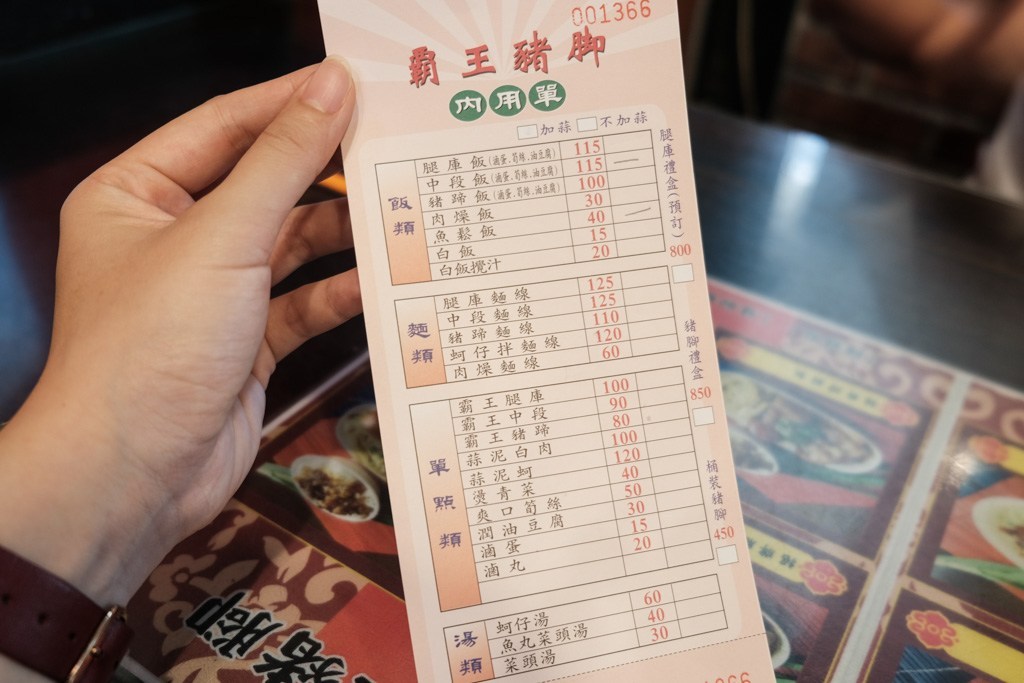 001366
霸王豬脚
內用單
加蒜 不加蒜
飯類
腿庫飯(滷蛋.筍絲.油豆腐) 115
中段飯(滷蛋.筍絲.油豆腐) 115
豬蹄飯(滷蛋.筍絲.油豆腐) 100
肉燥飯 30
魚鬆飯 40
白飯 15
白飯攪汁 20
麵類
腿庫麵線 125
中段麵線 125
豬蹄麵線 110
蚵仔拌麵線 120
肉燥麵線 60
單點類
霸王腿庫 100
霸王中段 90
霸王豬蹄 80
蒜泥白肉 100
蒜泥蚵 120
燙青菜 40
爽口筍絲 50
潤油豆腐 30
滷蛋 15
滷丸 20
湯類
蚵仔湯 60
魚丸菜頭湯 40
菜頭湯 30
腿庫禮盒(預訂) 800
豬腳禮盒 850
桶裝豬腳 450
豬腳